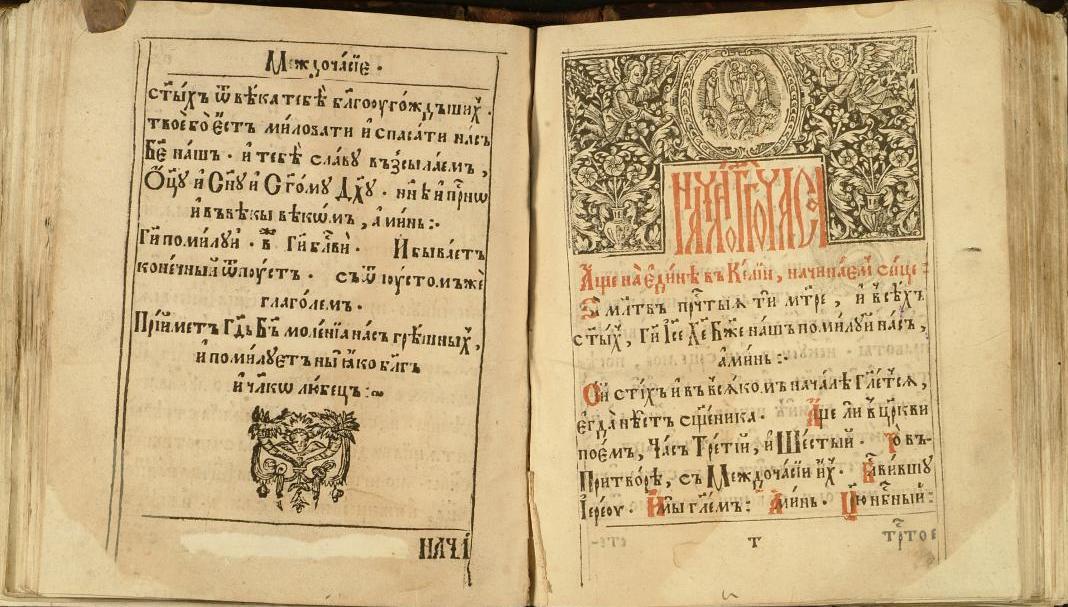 Междочасїе ·
ст҃ыхъ ѿ вѣка тебѣ бл҃гооугождьших̾ ·
твоѐ бо є҆сть миловати и спасати насъ
Бж҃е нашъ · и тебѣ славу възсылаемъ ,
Ѻц҃у и Сн҃у и Ст҃ому Дх҃у · нн҃ѣ и прн҃ѡ
и въ вѣкы вѣкѡмъ , аминь :·
Гп҃и помилуй · в҃ Гп҃и бл҃ви · И бываетъ
конечный ѿпоустъ · съ ѿпоустомъ же
глаголемъ ·
Прїиметъ Гд҃ь Бг҃ъ моленїа насъ грѣшных̾ ,
и помилуетъ ны ꙗко бл҃гъ
и чл҃колюбець :~
НАЧА
Аще на єдинѣ въ Келїи , начинаем̾ сице :
За мл҃твъ прч҃тыѧ ти мт҃ре , и всѣхъ
ст҃ых̾ , Ги҃ Іс҃е Хе҃ Бж҃е нашъ помилуй насъ ,
аминь :·
Сїй стїхъ и въ всѧкомъ началѣ гл҃етсѧ ,
єгда нѣсть сщ҃еника · Аще ли в̾ цр҃кви
поемъ , Часъ Третїй , и Шестый · То въ-
Притворѣ , съ Междочасїи их̾ · Бл҃авившу
Іерѐоу · И мы гл҃ем̾ : Аминь ·
т